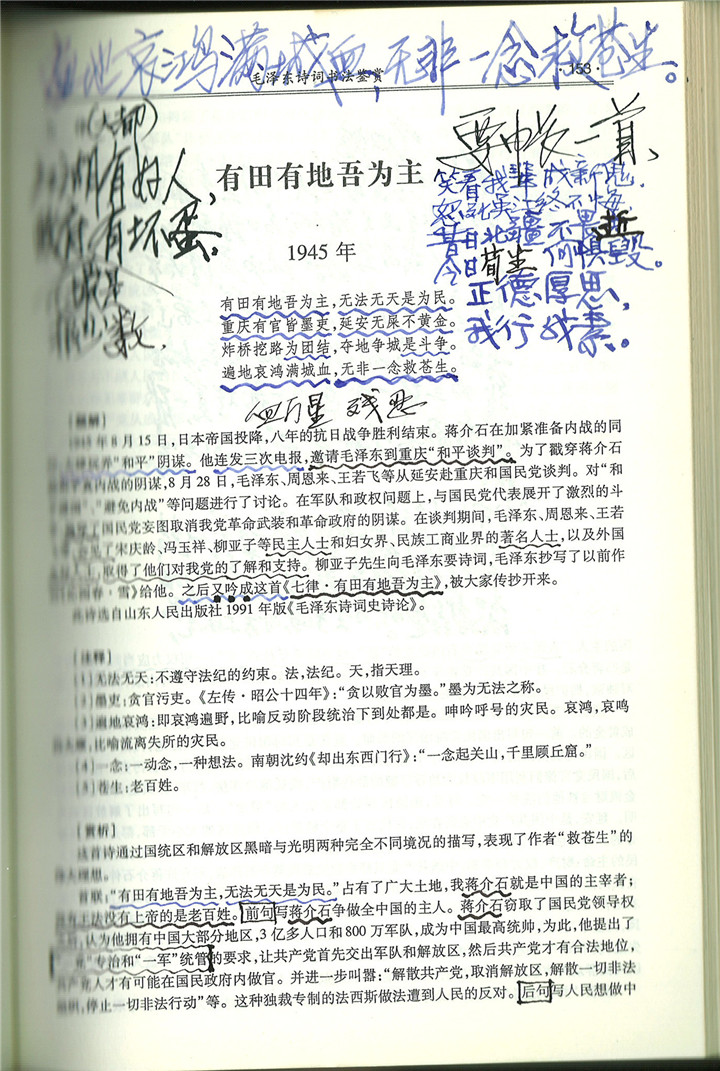 遍地哀鸿满城血,无非一念救苍生。
毛泽东诗词书法鉴赏 ·153·
有好人,
有坏蛋。
有田有地吾为主
1945 年
笑看我辈成新鬼
正德厚思,
我行我素。
有田有地吾为主,无法无天是为民。
重庆有官皆墨吏,延安无屎不黄金。
炸桥挖路为团结,夺地争城是斗争。
遍地哀鸿满城血,无非一念救苍生。
[题解]
1945 年 8 月 15 日,日本帝国投降,八年的抗日战争胜利结束。蒋介石在加紧准备内战的同
“和平”阴谋。他连发三次电报,邀请毛泽东到重庆“和平谈判”。为了戳穿蒋介石
真内战的阴谋,8 月 28 日,毛泽东、周恩来、王若飞等从延安赴重庆和国民党谈判。对“和
”、“避免内战”等问题进行了讨论。在军队和政权问题上,与国民党代表展开了激烈的斗
了国民党妄图取消我党革命武装和革命政府的阴谋。在谈判期间,毛泽东、周恩来、王若
会见了宋庆龄、冯玉祥、柳亚子等民主人士和妇女界、民族工商业界的著名人士,以及外国
取得了他们对我党的了解和支持。柳亚子先生向毛泽东要诗词,毛泽东抄写了以前作
春·雪》给他。之后又吟成这首《七律·有田有地吾为主》,被大家传抄开来。
此诗选自山东人民出版社 1991 年版《毛泽东诗词史诗论》。
[注释]
(1)无法无天:不遵守法纪的约束。法,法纪。天,指天理。
(2)墨吏:贪官污吏。《左传·昭公十四年》:“贪以败官为墨。”墨为无法之称。
(3)遍地哀鸿:即哀鸿遍野,比喻反动阶段统治下到处都是。呻吟呼号的灾民。哀鸿,哀鸣
比喻流离失所的灾民。
(4)一念:一动念,一种想法。南朝沈约《却出东西门行》:“一念起关山,千里顾丘窟。”
(5)苍生:老百姓。
[赏析]
这首诗通过国统区和解放区黑暗与光明两种完全不同境况的描写,表现了作者“救苍生”的
理想。
首联:“有田有地吾为主,无法无天是为民。”占有了广大土地,我蒋介石就是中国的主宰者;
没有上帝的是老百姓。前句写蒋介石争做全中国的主人。蒋介石窃取了国民党领导权
认为他拥有中国大部分地区,3 亿多人口和 800 万军队,成为中国最高统帅,为此,他提出了
”专治和“一军”统管的要求,让共产党首先交出军队和解放区,然后共产党才有合法地位,
共产党人才有可能在国民政府内做官。并进一步叫嚣:“解散共产党,取消解放区,解散一切非法
组织,停止一切非法行动”等。这种独裁专制的法西斯做法遭到人民的反对。后句写人民想做中